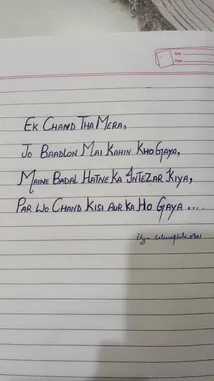 EK CHAND THA MERA,
JO BAADLON MAI KAHIN KHO GAYA,
MAINE BADAL HATNE KA INTEZAR KIYA,
PAR WO CHAND KISI AUR KA HO GAYA ....